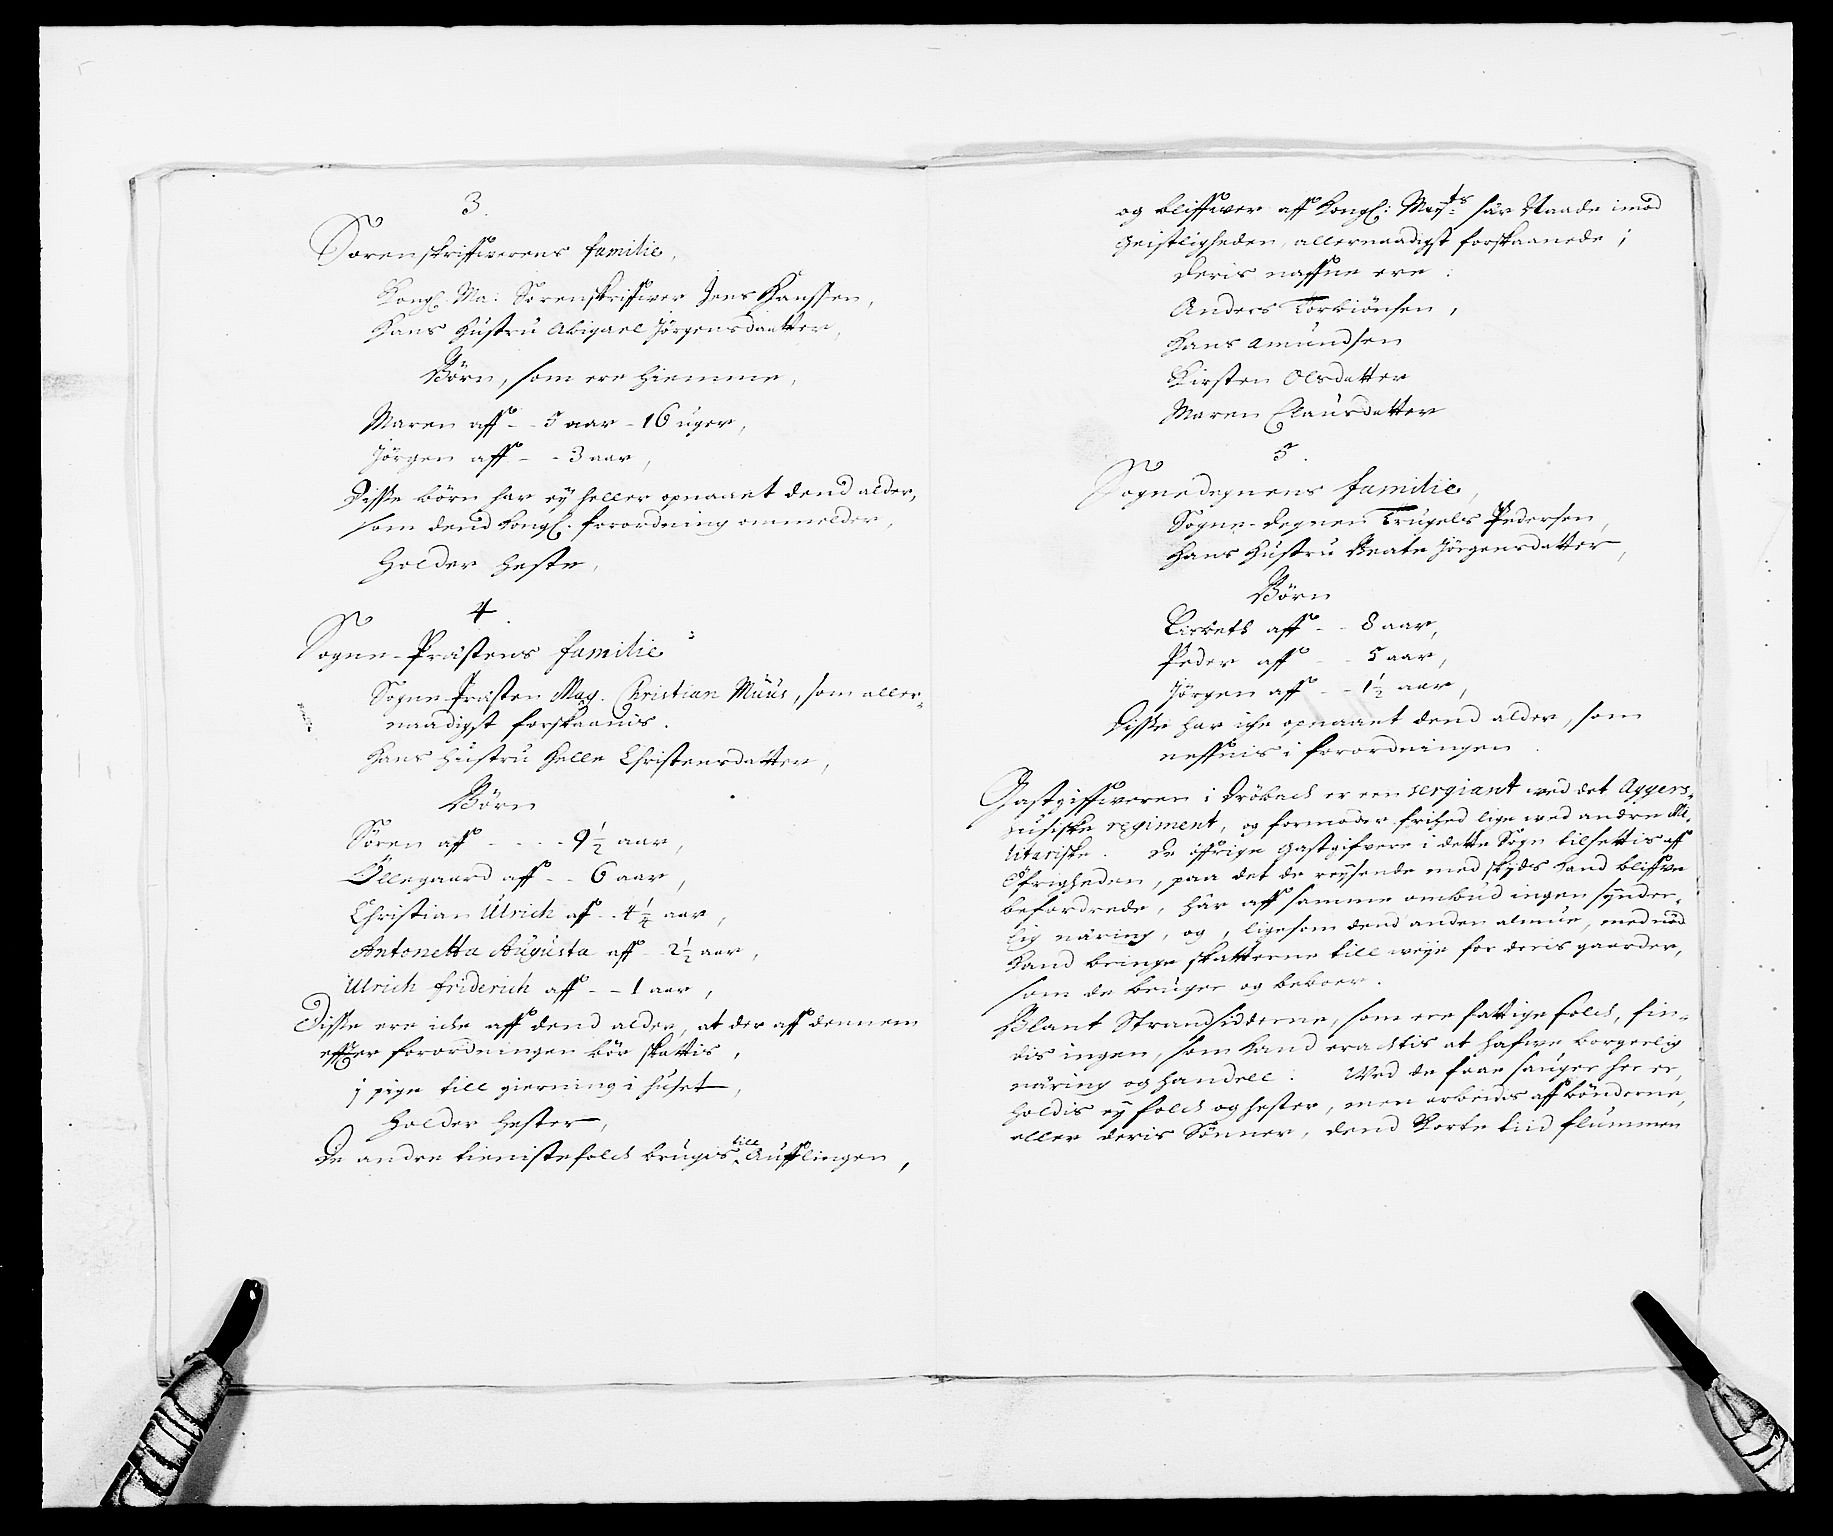 3.
Sorenskriffwerens familie,
Kongl. Ma: Sorenskriffwer Jens Hanssen,
Hans Hustru Abigael Jörgensdaatter,
Börn, som ere hiemme,
Maren aff - - 5 aar - 16 uger,
Jörgen aff - - 3 aar,
Disse börn har ey heller opnaaet dend alder,
som dend Kongl. forordning ommelder,
Holder heste,
4.
Sogne-Præstens familie
Sogne Præsten Mag. Christian Muus, som aller-
naadigst forskaanis.
Hans Hustru Helle Christensdatter,
Börn
Sören aff - - - - 9½ aar,
Öllegaard aff - - 6 aar,
Christian Ulrich aff - - 4¼ aar,
Antonetta Augusta aff - - 2½ aar,
Ulrich friderich aff - - 1 aar,
Disse ere icke aff dend alder, at der aff dennem
effter forordningen bör skattis,
1 pige till gierning i huset,
Holder hester,
De andre tienistefolck brugis till Aufflingen,
og bliffwer aff Kongl: Mayts: här Naade imod
Geistligheden, allernaadigst forskaanede;
Deris naffne ere:
Anders Torbiönsen,
Hans Amundsen
Kirsten Olsdatter
Maren Clausdatter
5.
Sognedegnens familie,
Sogne-Degnen Trugels Pedersen,
Hans Hustru Beate Jörgensdatter,
Börn
Lisbeth aff - - 8 aar,
Peder aff - - 5 aar,
Jörgen aff - - 1½ aar,
Disse har icke opnaaet dend alder, som
neffnis i forordningen.
Gastgiffweren i Dröback er een sergiant ved det Aggers-
husiske regiment, og formoder frihed lige ved andre Mi-
litariske. De öffrige Gastgifvere i dette Sogn tilsettis aff
Öfrigheden, paa det de reysende med skyds kand bliffve
befordrede, här aff samme ombud ingen synder-
lig näring, og, ligesom dend anden almue, med nöd
kand bringe skatterne till weye for deris gaarder,
som de bruger og beboer.
Blant Strandsidderne, som ere fattige folck, fin-
dis ingen, som kand erachtis at hafwe borgerlig
näring og handell. Wed de faae sauger her er,
holdis ey folck og hester, men arbeides aff bönderne,
eller deris Sönner, dend korte tiid flummen